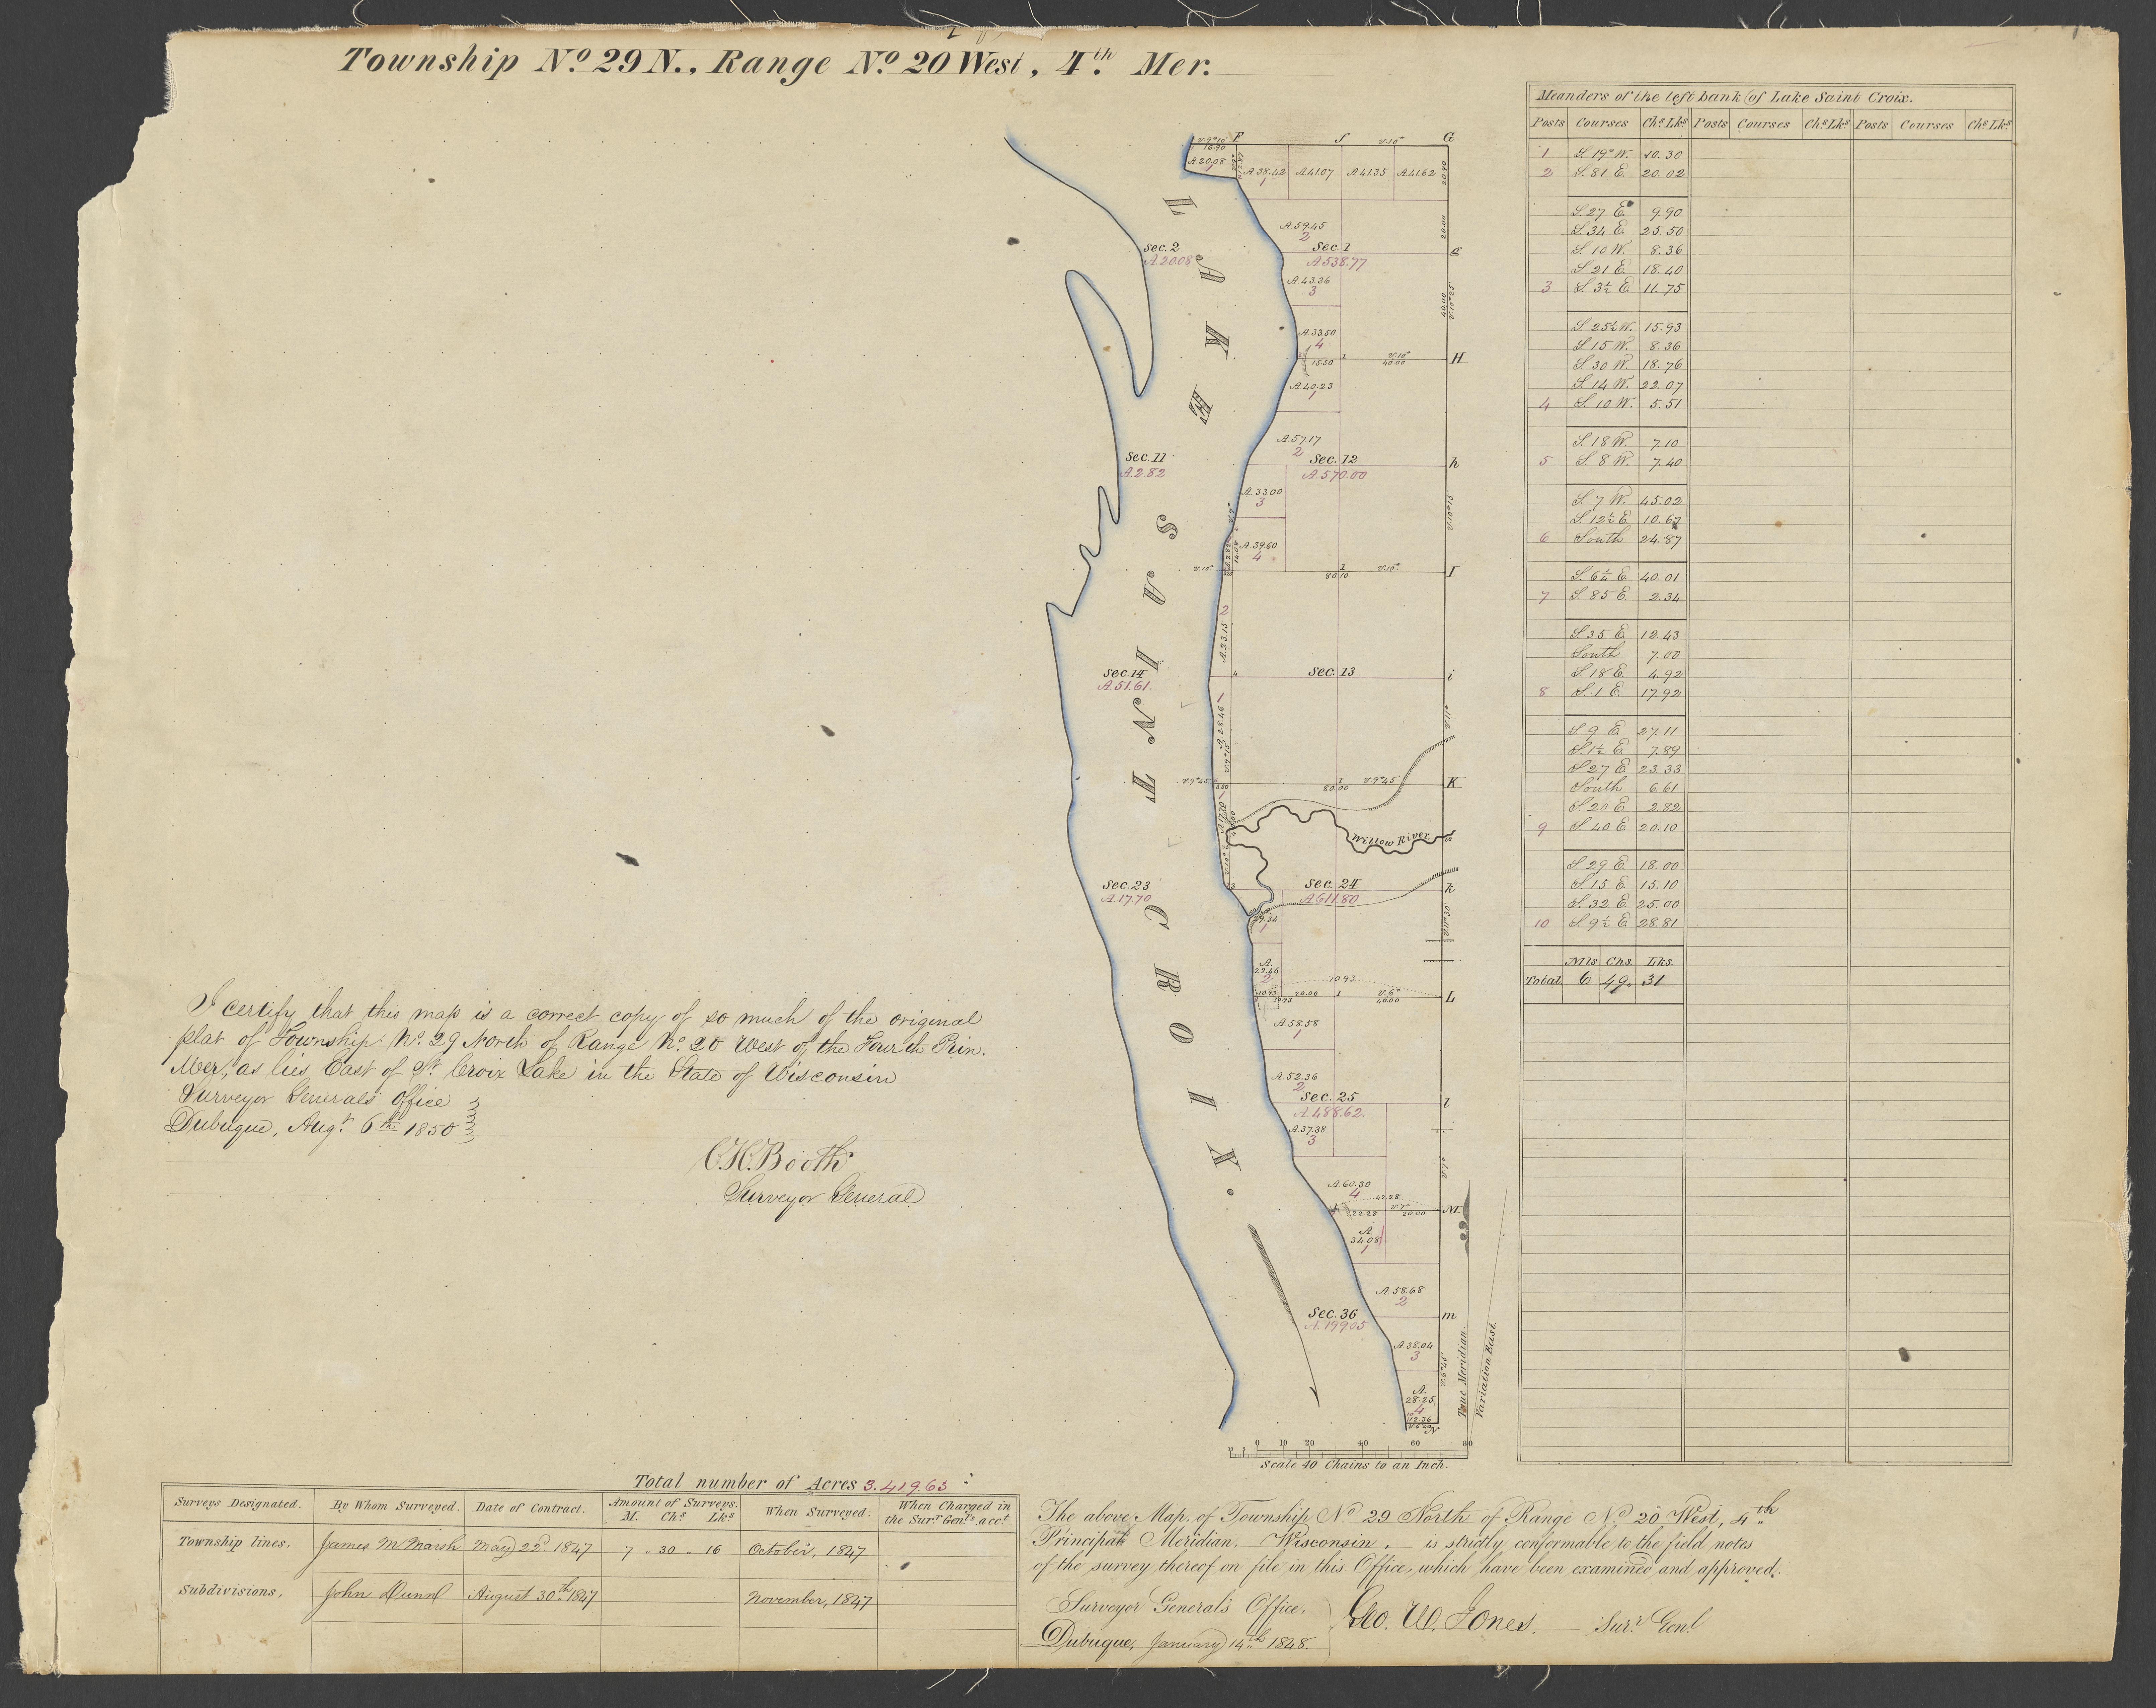 Township Nº 29 N., Range Nº 20 West, 4th Mer.
Meanders of the left bank of Lake Saint Croix.
Posts Courses Chs Lks Posts Courses Chs Lks Posts Courses Chs Lks
1 S. 19° W. 10.30
2 S. 81 E 20.02
S. 27 E 9.90
S. 34 E 25.50
S. 10 W. 8.36
S. 21 E 18.40
3 S. 3½ E 11.75
S. 25½ W. 15.93
S. 15 W. 8.36
S. 30 W. 18.76
S. 14 W. 22.07
4 S. 10 W. 5.51
S. 18 W. 7.10
5 S. 8 W. 7.40
S. 7 W. 45.02
S. 12½ E 10.67
6 South 24.87
S. 6¼ E 40.01
7 S. 85 E. 2.34
S. 35 E 12.43
South 7.00
S. 18 E 4.92
8 S. 1 E 17.92
S. 9 E 27.11
S. 1½ E 7.89
S. 27 E 23.33
South 6.61
S. 20 E 2.82
9 S. 40 E 20.10
S. 29 E 18.00
S. 15 E 15.10
S. 32 E 25.00
10 S. 9½ E 28.81
Mls Chs. Lks.
Total 6 49. 31
F f V.10° G
16.90
A.20.08
1
A.38.42
1
A.41.07
A.41.35
A.41.62
20.40
A.59.45
2
20.00
Sec. 2
A.20.08
Sec. 1
A.538.77
g
A.43.36
3
40.00
V.10°25'
A.33.50
4
15.50
V.10°
40.00
H
A.40.23
1
A.57.17
2
Sec. 11
A.2.82
Sec. 12
A.570.00
h
A.33.00
3
V.10°15'
A.39.60
4
V.10°
80.10
V.10°
I
2
A.23.15
Sec. 14
A.51.61.
Sec. 13
i
1
A.28.46
V.9°15'
V.11°
V.9°45'
80.00
V.9°45'
K
A.17.70
Willow River
Sec. 23
A.17.70
Sec. 24
A.611.80
k
1
V.11°30'
A.
22.46
2
70.93
10.93
30.93
20.00
V.6°
40.00
L
A.58.58
1
A.52.36
2
Sec. 25
A.488.62.
l
A.37.38
3
A.60.30
4
42.28
22.28
V.7°
20.00
M
A.
34.08
1
A.58.68
2
Sec. 36
A.199.05
m
A.38.04
3
V.6°45'
A.
28.25
4
12.36
N
LAKE SAINT CROIX.
True Meridian.
Variation East.
0 10 20 40 60 80
Scale 40 Chains to an Inch.
I certify that this map is a correct copy of so much of the original
plat of Township Nº 29 North of Range Nº 20 West of the Fourth Prin.
Mer., as lies East of St Croix Lake in the State of Wisconsin
Surveyor Generals Office
Dubuque, Augt 6th 1850
C.H. Booth
Surveyor General
Total number of Acres 3.419.63
Surveys Designated. By Whom Surveyed. Date of Contract. Amount of Surveys. M. Chs Lks When Surveyed. When Charged in the Surr Genl's acct
Township lines. James M Marsh May 22d 1847 7 „ 30 „ 16 October, 1847
Subdivisions. John Dunn August 30th 1847 November, 1847
The above Map of Township Nº 29 North of Range Nº 20 West, 4th
Principal Meridian, Wisconsin, is strictly conformable to the field notes
of the survey thereof on file in this Office, which have been examined and approved.
Surveyor General's Office,
Dubuque, January 14th 1848.
Geo. W. Jones, Surr Genl